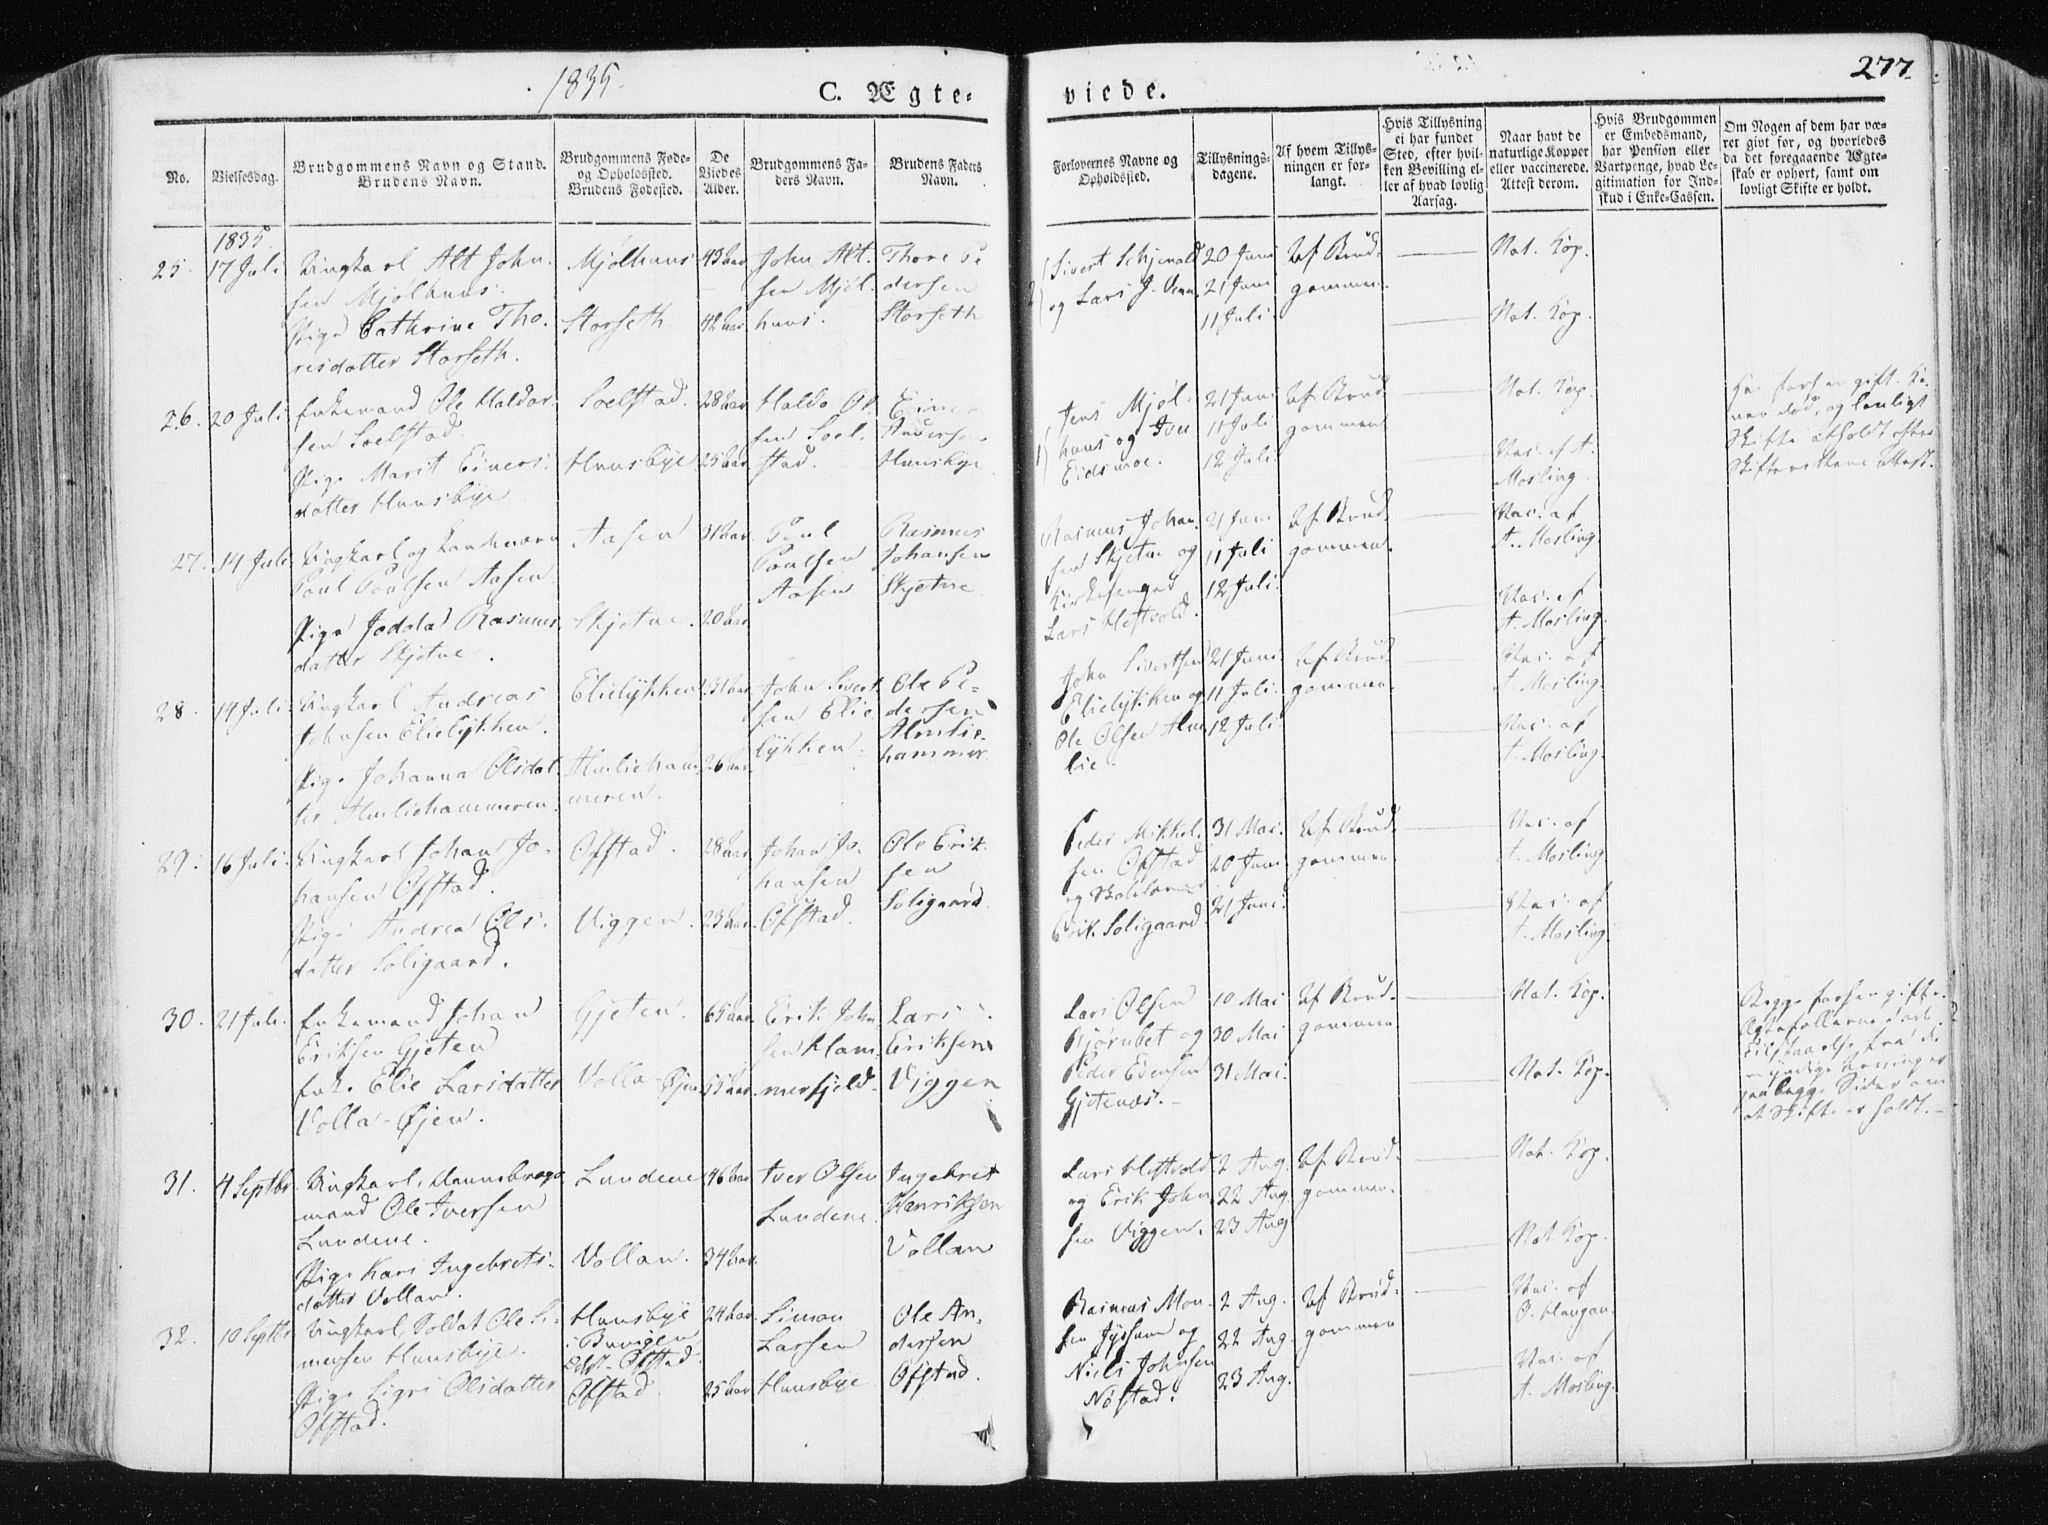 1835.
C. Ægte-
viede.
277.
No.
Vielsesdag.
Brudgommens Navn og Stand.
Brudens Navn.
Brudgommens Føde-
og Opholdssted.
Brudens Fødested.
De
Viedes
Alder.
Brudgommens Fa-
ders Navn.
Brudens Faders
Navn.
Forlovernes Navne og
Opholdssted.
Tillysnings-
dagene.
Af hvem Tillys-
ningen er for-
langt.
Hvis Tillysning
ei har fundet
Sted, efter hvil-
ken Bevilling el-
ler af hvad lovlig
Aarsag.
Naar havt de
naturlige Kopper
eller vaccinerede.
Attest derom.
Hvis Brudgommen
er Embedsmand,
har Pension eller
Vartpenge, hvad Le-
gitimation for Ind-
skud i Enke-Cassen.
Om Nogen af dem har væ-
ret givt før, og hvorledes
da det foregaaende Ægte-
skab er ophørt, samt om
lovligt Skifte er holdt.
1835.
25.
17 Juli
Ungkarl Alt John-
sen Mjølhuus.
Pige Cathrine Tho-
resdatter Storseth.
Mjølhuus
Storseth
43 Aar
42 Aar
John Alt-
sen Mjøl-
huus.
Thore Pe
dersen
Storseth
Sivert Schjevald
og Lars J. Venn.
20 Juni
21 Juni
11 Juli
Af Brud-
gommen.
Nat. Kop.
Nat. Kop.
26.
20 Juli
Enkemand Ole Haldor-
sen Soelstad.
Pige Marit Einers-
datter Huusbye
Soelstad.
Huusbye
28 Aar
25 Aar
Haldo Ol-
sen Soel-
stad.
Einer
Andersen
Huusbye
Jens Mjøl-
huus og Iver
Eidsmoe.
21 Juni
11 Juli
12 Juli
Af Brud-
gommen
Nat. Kop.
Vac. af A.
Mosling
Har før er gift. Ko-
nen død, og lovligt
Skifte atholdt efter
Skifterettens Attest.
27.
14 Juli
Ungkarl og
Poul Poulsen Aasen
Pige Rasmus-
datter Skjetne.
Aasen
Skjetne.
31 Aar
20 Aar
Poul
Poulsen
Aasen
Rasmus
Johansen
Skjetne
Rasmus Johan-
sen Skjetne og
Kirkesanger
Lars Hestvold.
21 Juni
11 Juli
12 Juli.
Af Brud-
gommen.
Vac. af
A. Mosling.
Vac. af
A. Mosling.
28.
14 Juli.
Ungkarl Andreas
Johnsen Elielykken.
Pige Johanna Olsdat-
ter Almliehammeren.
Elielykken
Almlieham-
meren.
31 Aar
26 Aar.
John Sivert-
sen Elie-
lykken.
Ole Pe-
dersen
Almlie-
hammer
John Sivertsen
Elielykken og
Ole Olsen Alm-
lie
21 Juni
11 Juli.
12 Juli
Af Brud-
gommen.
Vac. af
A. Mosling.
Vac. af
A. Mosling.
29.
16 Juli.
Ungkarl Johan Jo-
hansen Ofstad.
Pige Andrea Ols-
datter Soligaard.
Ofstad.
Viggen.
28 Aar
23 Aar.
Johan Jo-
hansen
Ofstad.
Ole Erik-
sen
Soligaard.
Peder Mikkel-
sen Ofstad
og Skolelærer
Erik Soligaard
31 Mai.
20 Juni
21 Juni.
Af Brud-
gommen
Vac. af
A. Mosling
Vac. af
A. Mosling.
30.
21 Juli.
Enkemand Johan
Eriksen Gjeten
Enke Elie Larsdatter
Volla-Øjen.
Gjeten.
Volla-Øjen
65 Aar.
55 Aar.
Erik John-
sen Ham-
merfjeld.
Lars
Eriksen
Viggen
Lars Olsen
Bjørnbet og
Peder Evensen
Gjetenæs.
10 Mai
30 Mai
31 Mai.
Af Brud-
gommen
Nat. Kop.
Nat. Kop.
Begge før er gifte.
Ægtefællerne døde.
Tilstaaelse fra de
myndige Arvinger
paa begge Sider om
at Skifte er holdt.
31.
4 Septbr.
Ungkarl, Dannebrogs-
mand Ole Iversen
Lundene.
Pige Kari Ingebrets-
datter Vollan.
Lundene
Vollan.
46 Aar
34 Aar.
Iver Olsen
Lundene.
Ingebret
Henriksen
Vollan
Lars Hestvold
og Erik John-
sen Viggen.
2 Aug.
22 Aug.
23 Aug
Af Brud-
gommen.
Nat. Kop.
Nat. Kop.
32.
10 Septbr
Ungkarl, Soldat Ole Si-
monsen Huusbye.
Pige Sigri Olsdatter
Ofstad.
Huusbye
i Buvigen
Ofstad.
Ofstad.
24 Aar
25 Aar
Simon
Larsen
Huusbye
Ole An-
dersen
Ofstad.
Rasmus Mon-
sen Jyssum og
Niels Johnsen
Nøstad.
2 Aug.
22 Aug.
23 Aug.
Af Brud-
gommen
Vac. af
O. Haugan.
Vac. af
A. Mosling.